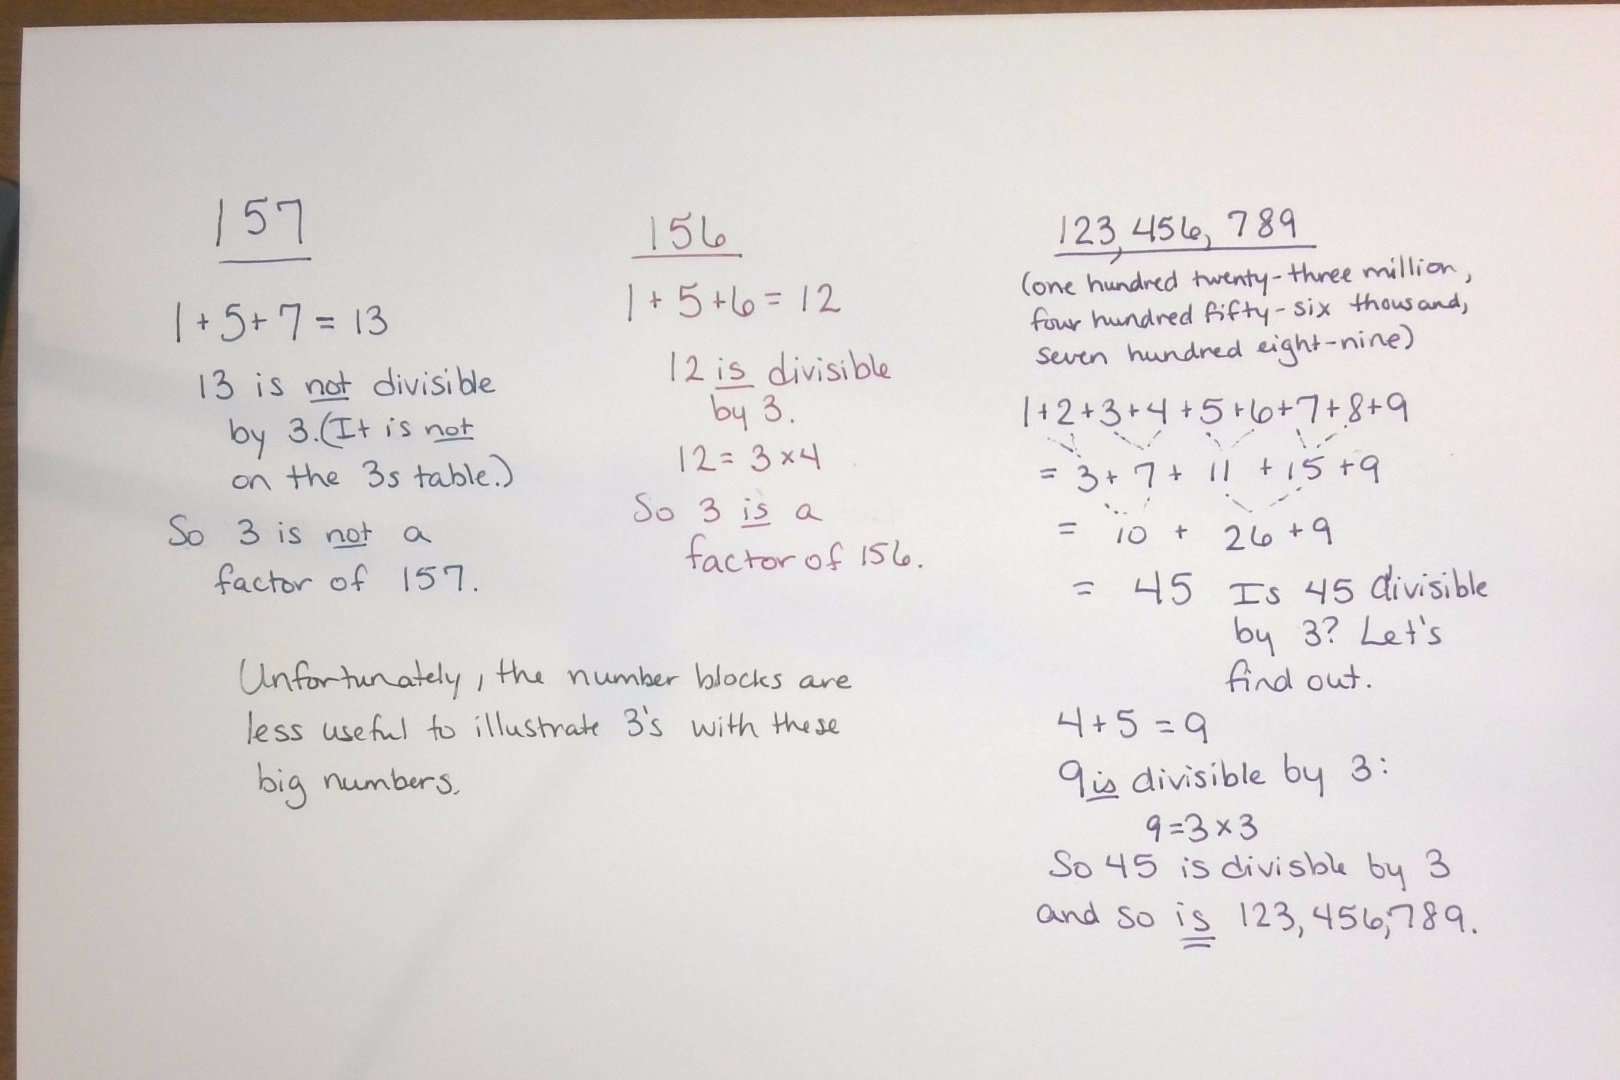 157
1+5+7=13
13 is not divisible
by 3.(It is not
on the 3s table.)
So 3 is not a
factor of 157.
156
1+5+6=12
12 is divisible
by 3.
12=3×4
So 3 is a
factor of 156.
Unfortunately, the number blocks are
less useful to illustrate 3's with these
big numbers.
123,456,789
(one hundred twenty-three million,
four hundred fifty-six thousand,
seven hundred eight-nine)
1+2+3+4+5+6+7+8+9
=3+7+11+15+9
=10+26+9
=45 Is 45 divisible
by 3? Let's
find out.
4+5=9
9 is divisible by 3:
9=3×3
So 45 is divisble by 3
and so is 123,456,789.